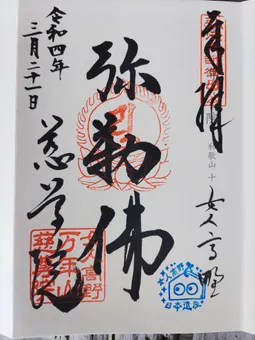 奉拝
和歌山
女人高野
弥勒佛
令和四年
三月二十一日
慈尊院
女人高野
万年山
慈尊院
女人高野
日本遺産